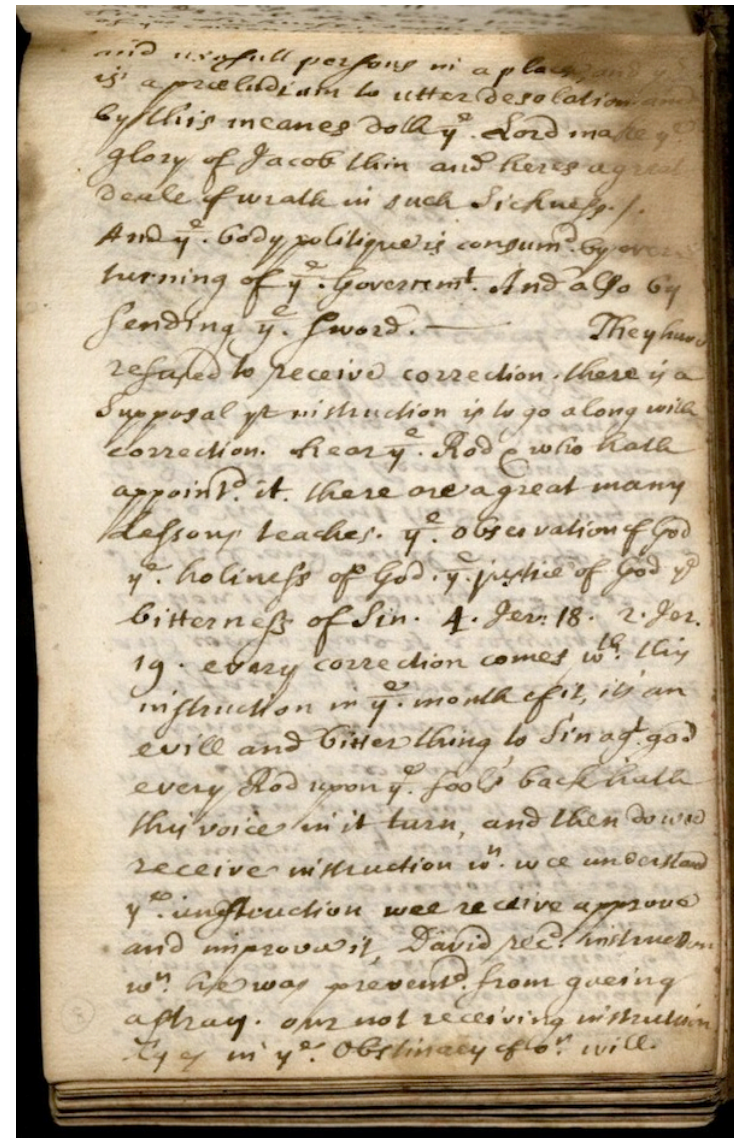 and usefull persons in a place, and yt
is a præludium to utter desolation and
by this meanes doth ye. Lord make ye
glory of Jacob thin and heres a great
deale of wrath in such Sickness. /.
And ye. body politique is consumd. by over
turning of ye. Governmt. And also by
sending ye. sword. — They have
refused to receive correction. there is a
Supposal yt instruction is to go along with
correction. hear ye. Rod & who hath
appointd. it. there are a great many
Lessons teaches. ye. observation of God
ye. holiness of God. ye. justice of God ye
bitterness of Sin. 4. Jer. 18. 2. Jer.
19. every correction comes wth. this
instruction in ye. mouth of it, its an
evill and bitter thing to Sin agt. god
every Rod upon ye. fools back hath
this voice in it turn, and then do wee
receive instruction wn. wee understand
ye. instruction wee receive approve
and improve it, David recd. instruction
wn. he was preventd. from goeing
astray. our not receiving instruction
lyes in ye. Obstinacy of or. will.